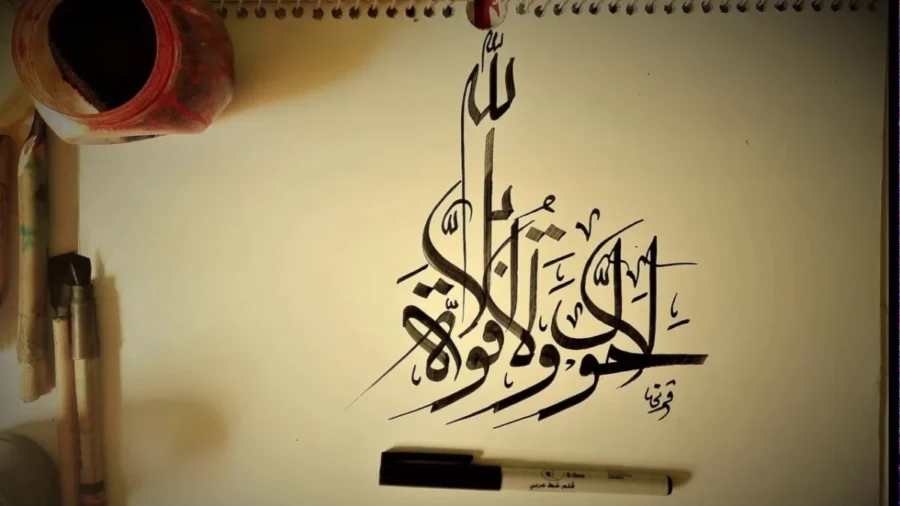 لا حول ولا قوة إلا بالله
قلم خط عربي